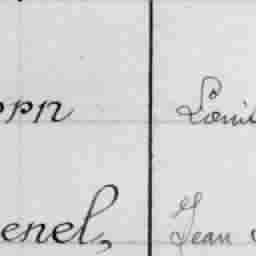 opn Loui
enel, Jean